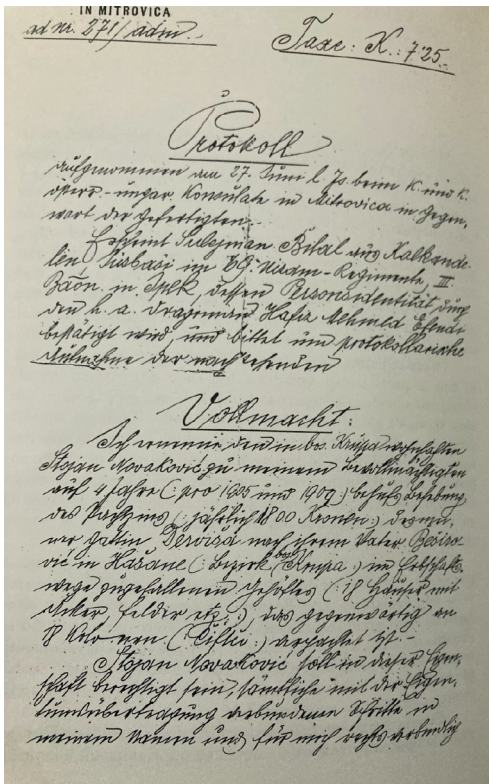 IN MITROVICA
ad Nr. 271/adm.
Taxe: K.: 7·25.-
Protokoll
aufgenommen am 27. Juni l. Js. beim k. und k.
österr.-ungar. Konsulate in Mitrovica in Gegen-
wart der Gefertigten.-
Erscheint Sulejman Bilal aus Kalkande-
len im 69. Nizam-Regimente, III.
Baon. in Ipek, dessen Personsidentität durch
den h. a. Dragoman Hafiz Mehmed Efendi
bestätigt wird, und bittet um protokollarische
Aufnahme der nachstehenden
Vollmacht:
Ich ernenne den in bos. Krupa wohnhaften
Stojan Novaković zu meinem Bevollmächtigten
auf 4 Jahre (: pro 1905 und 1909 :) behufs Behebung
des Pachtzins (: jährlich 1800 Kronen :) des mei-
ner Gattin Derviša nach ihrem Vater Beširo
vić in Hašane (: Bezirk bos Krupa :) im Erbschafts
wege zugefallenen Gehöftes (: 18 Häuser mit
Äcker, Felder etz. :), das gegenwärtig an
18 Kolonen (: Čiftči :) verpachtet ist.-
Stojan Novaković soll in dieser Eigen-
schaft berechtigt sein, sämtliche mit der Eigen-
tumsübertragung verbundenen Schritte in
meinem Namen und für mich rechtsverbindlich